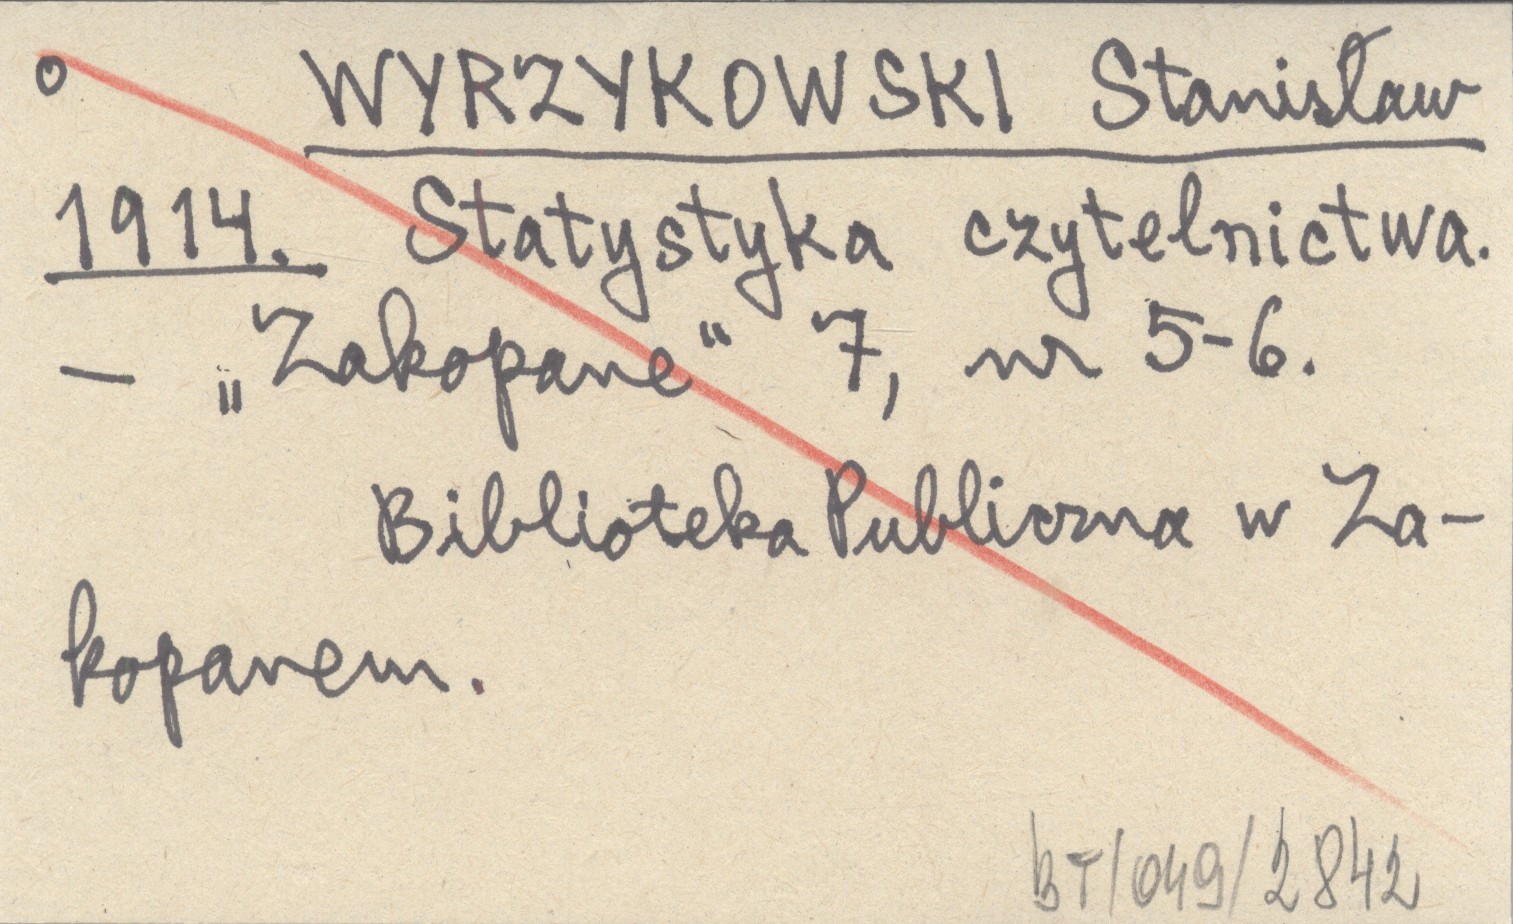 o WYRZYKOWSKI Stanisław
1914. Statystyka czytelnictwa.
— „Zakopane“ 7, nr 5-6.
Biblioteka Publiczna w Za-
kopanem.
BT/049/2842